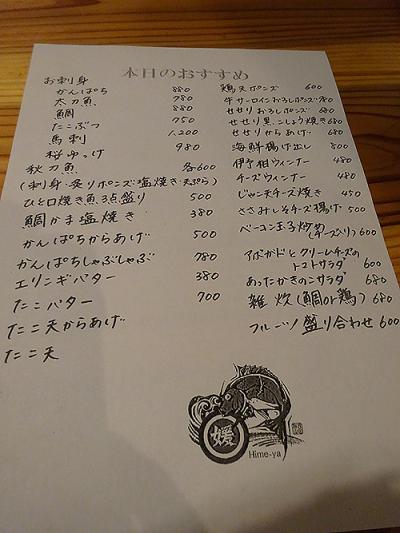 本日のおすすめ
お刺身
かんぱち 880
太刀魚 780
鯛 880
たこぶつ 750
馬刺 1,200
桜ゆっけ 980
秋刀魚 各600
(刺身・炙りポンズ・塩焼き・天ぷら)
ひと口焼き魚3点盛り 500
鯛かま塩焼き 380
かんぱちからあげ 500
かんぱちしゃぶしゃぶ 780
エリンギバター 380
たこバター 700
たこ天からあげ
たこ天
鶏天ポンズ 600
牛サーロインおろしポンズ 780
せせりおろしポンズ 680
せせり黒こしょう焼き 680
せせりからあげ 680
海鮮揚げ出し 800
伊予柑ウィンナー 480
チーズウィンナー 480
じゃこ天チーズ焼き 450
ささみしそチーズ揚げ 500
ベーコン玉子焼き(チーズ入り) 600
アボガドとクリームチーズの
トマトサラダ 600
あったかきのこサラダ 680
雑炊(鯛or鶏) 680
フルーツ盛り合わせ 600
媛
Hime-ya